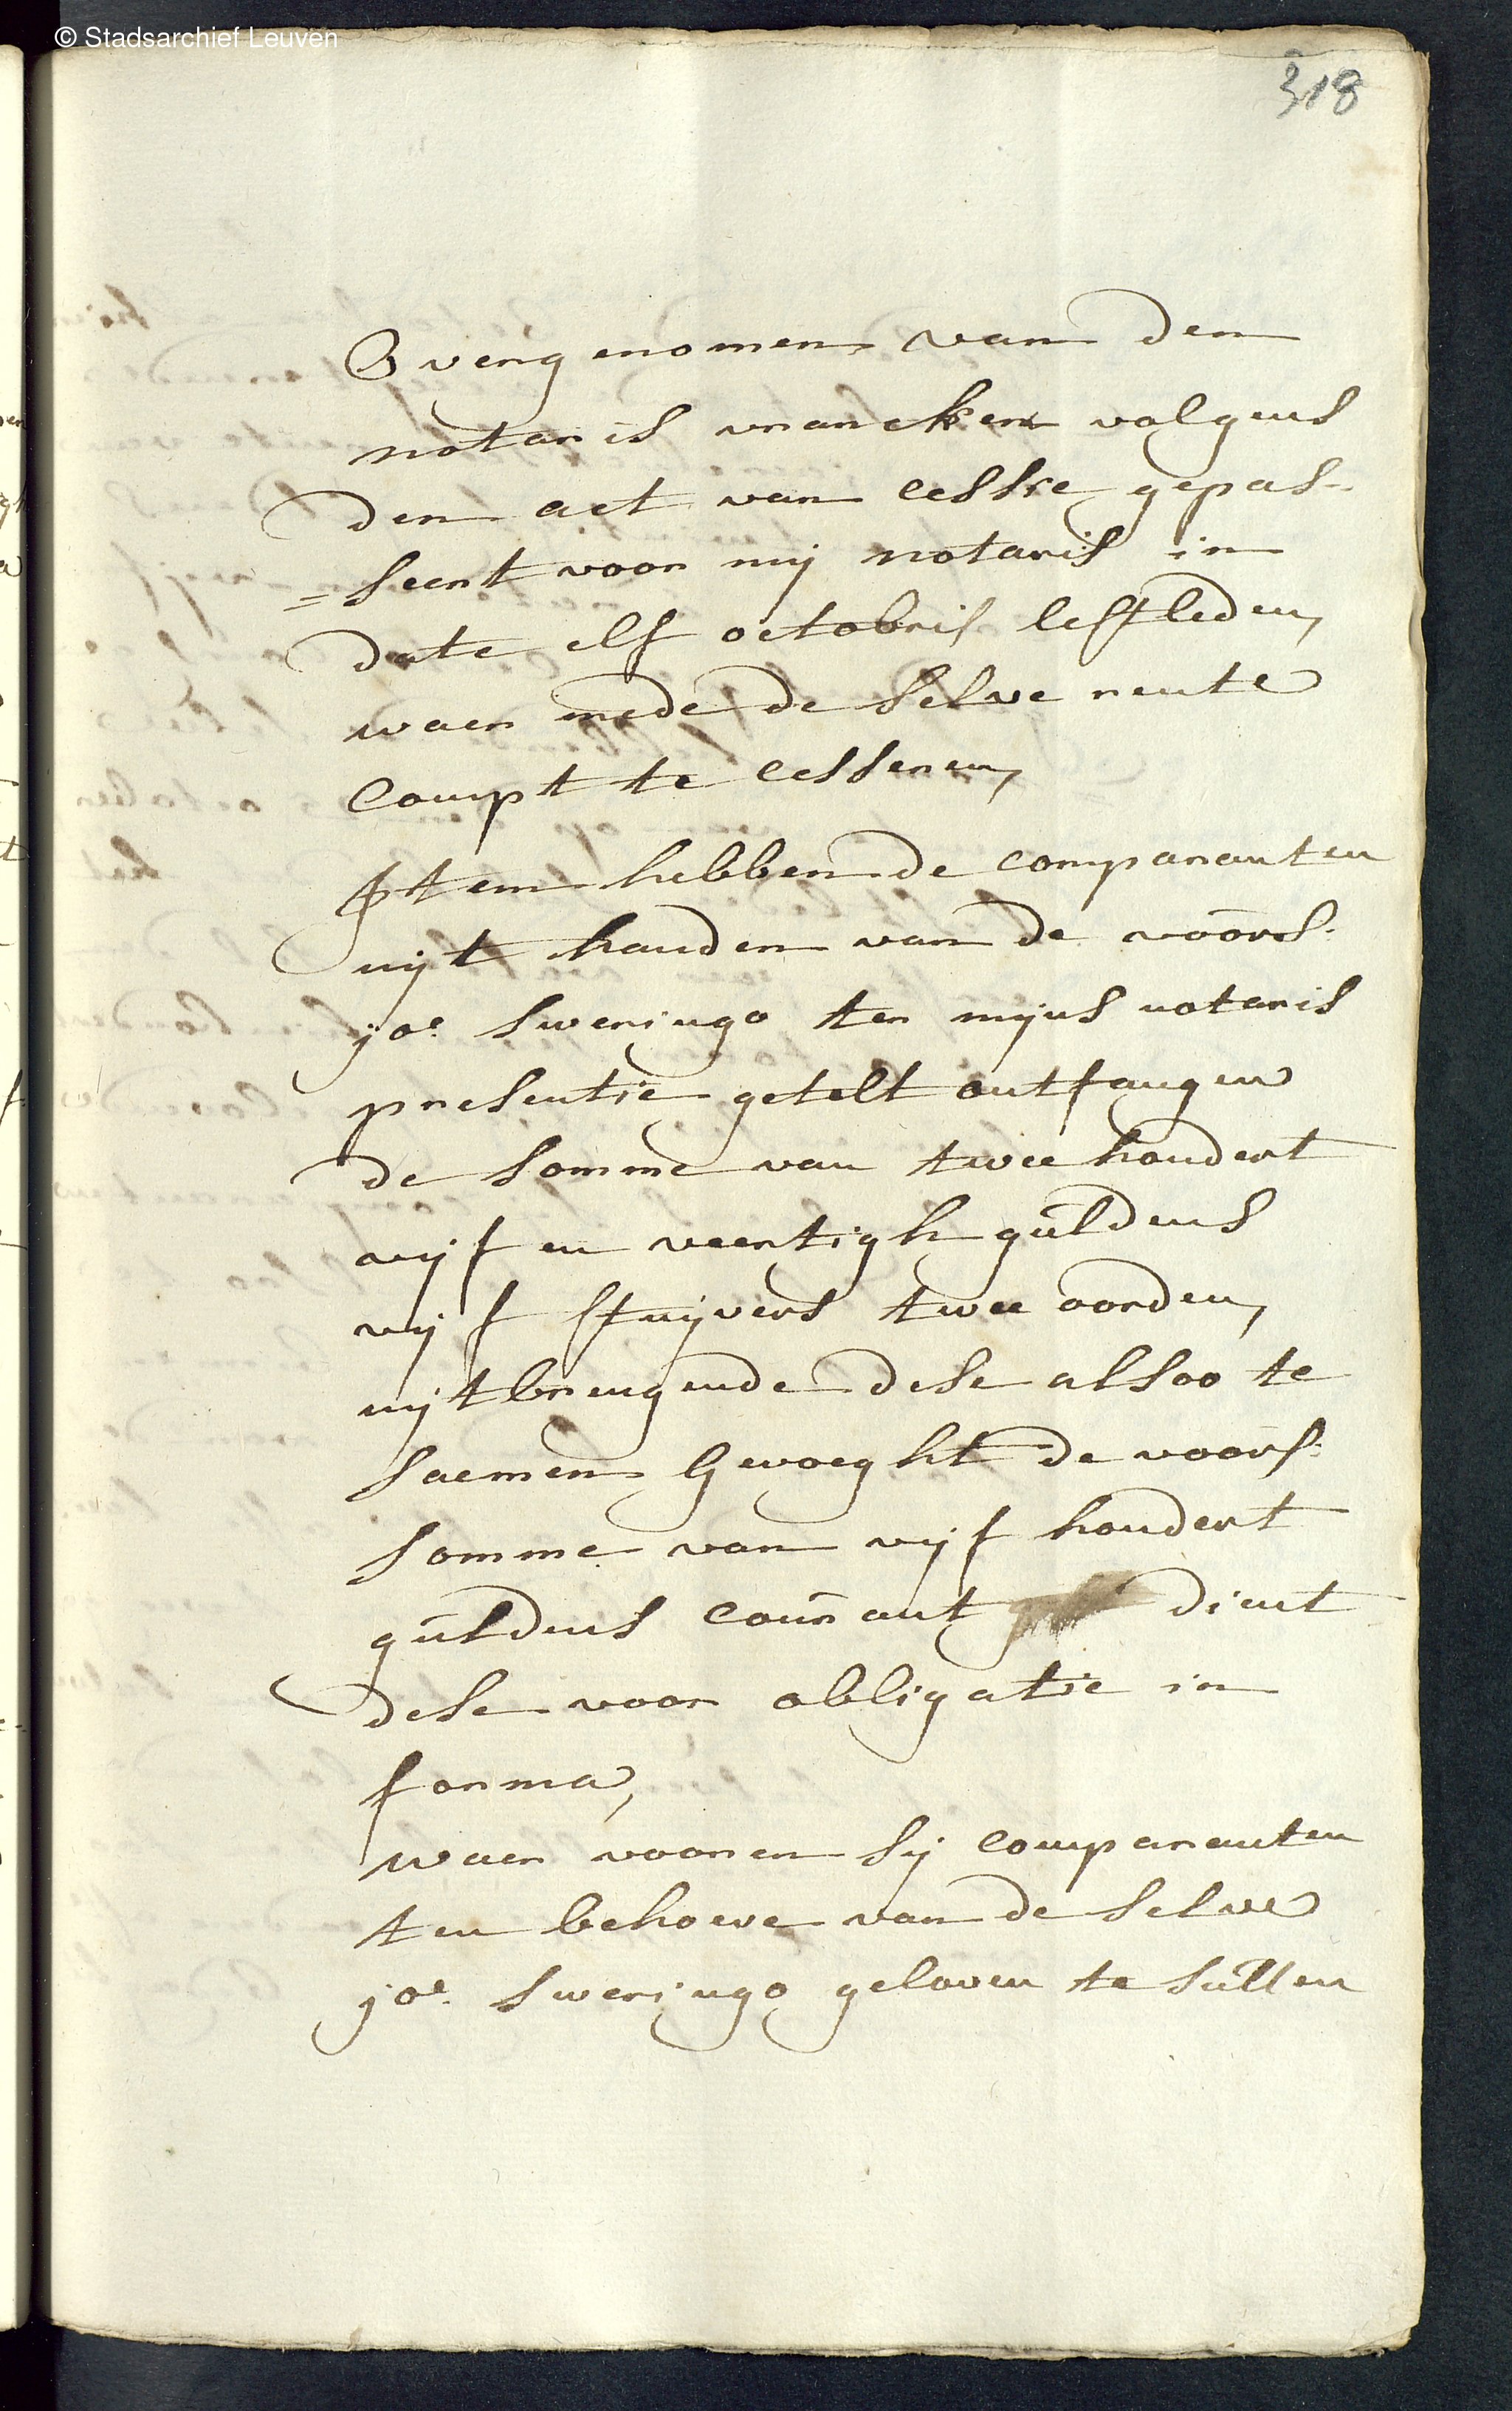 © Stadsarchief Leuven
318
Overgenomen van den
notaris vrancken volgens
den act van cessie gepas-
=seert voor mij notaris in
date elf octobris lestleden,
waer mede de selve rente
compt te cesseren,
Item hebben de comparanten
uijt handen van de voors:
joe. sweringo ter mijns notaris
presentie getelt ontfangen
de somme van twee hondert
vijf en veertigh guldens
vijf stuijvers twee oorden,
uijtbrengende dese alsoo te
saemen gevoeght de voors:
somme van vijf hondert
guldens courant dient
dese voor obligatie in
forma,
waer vooren sij comparanten
ten behoeve van de selve
joe. sweringo geloven te sullen